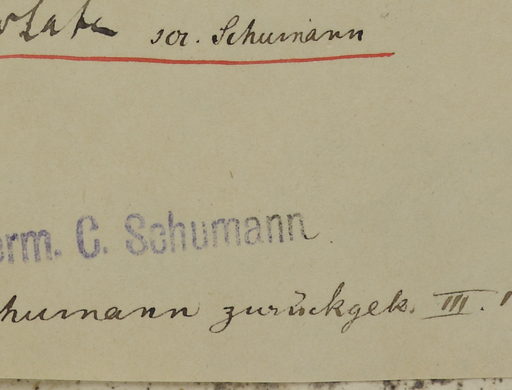 scr. Schumann
erm. C. Schumann
chumann zurückgek. III.